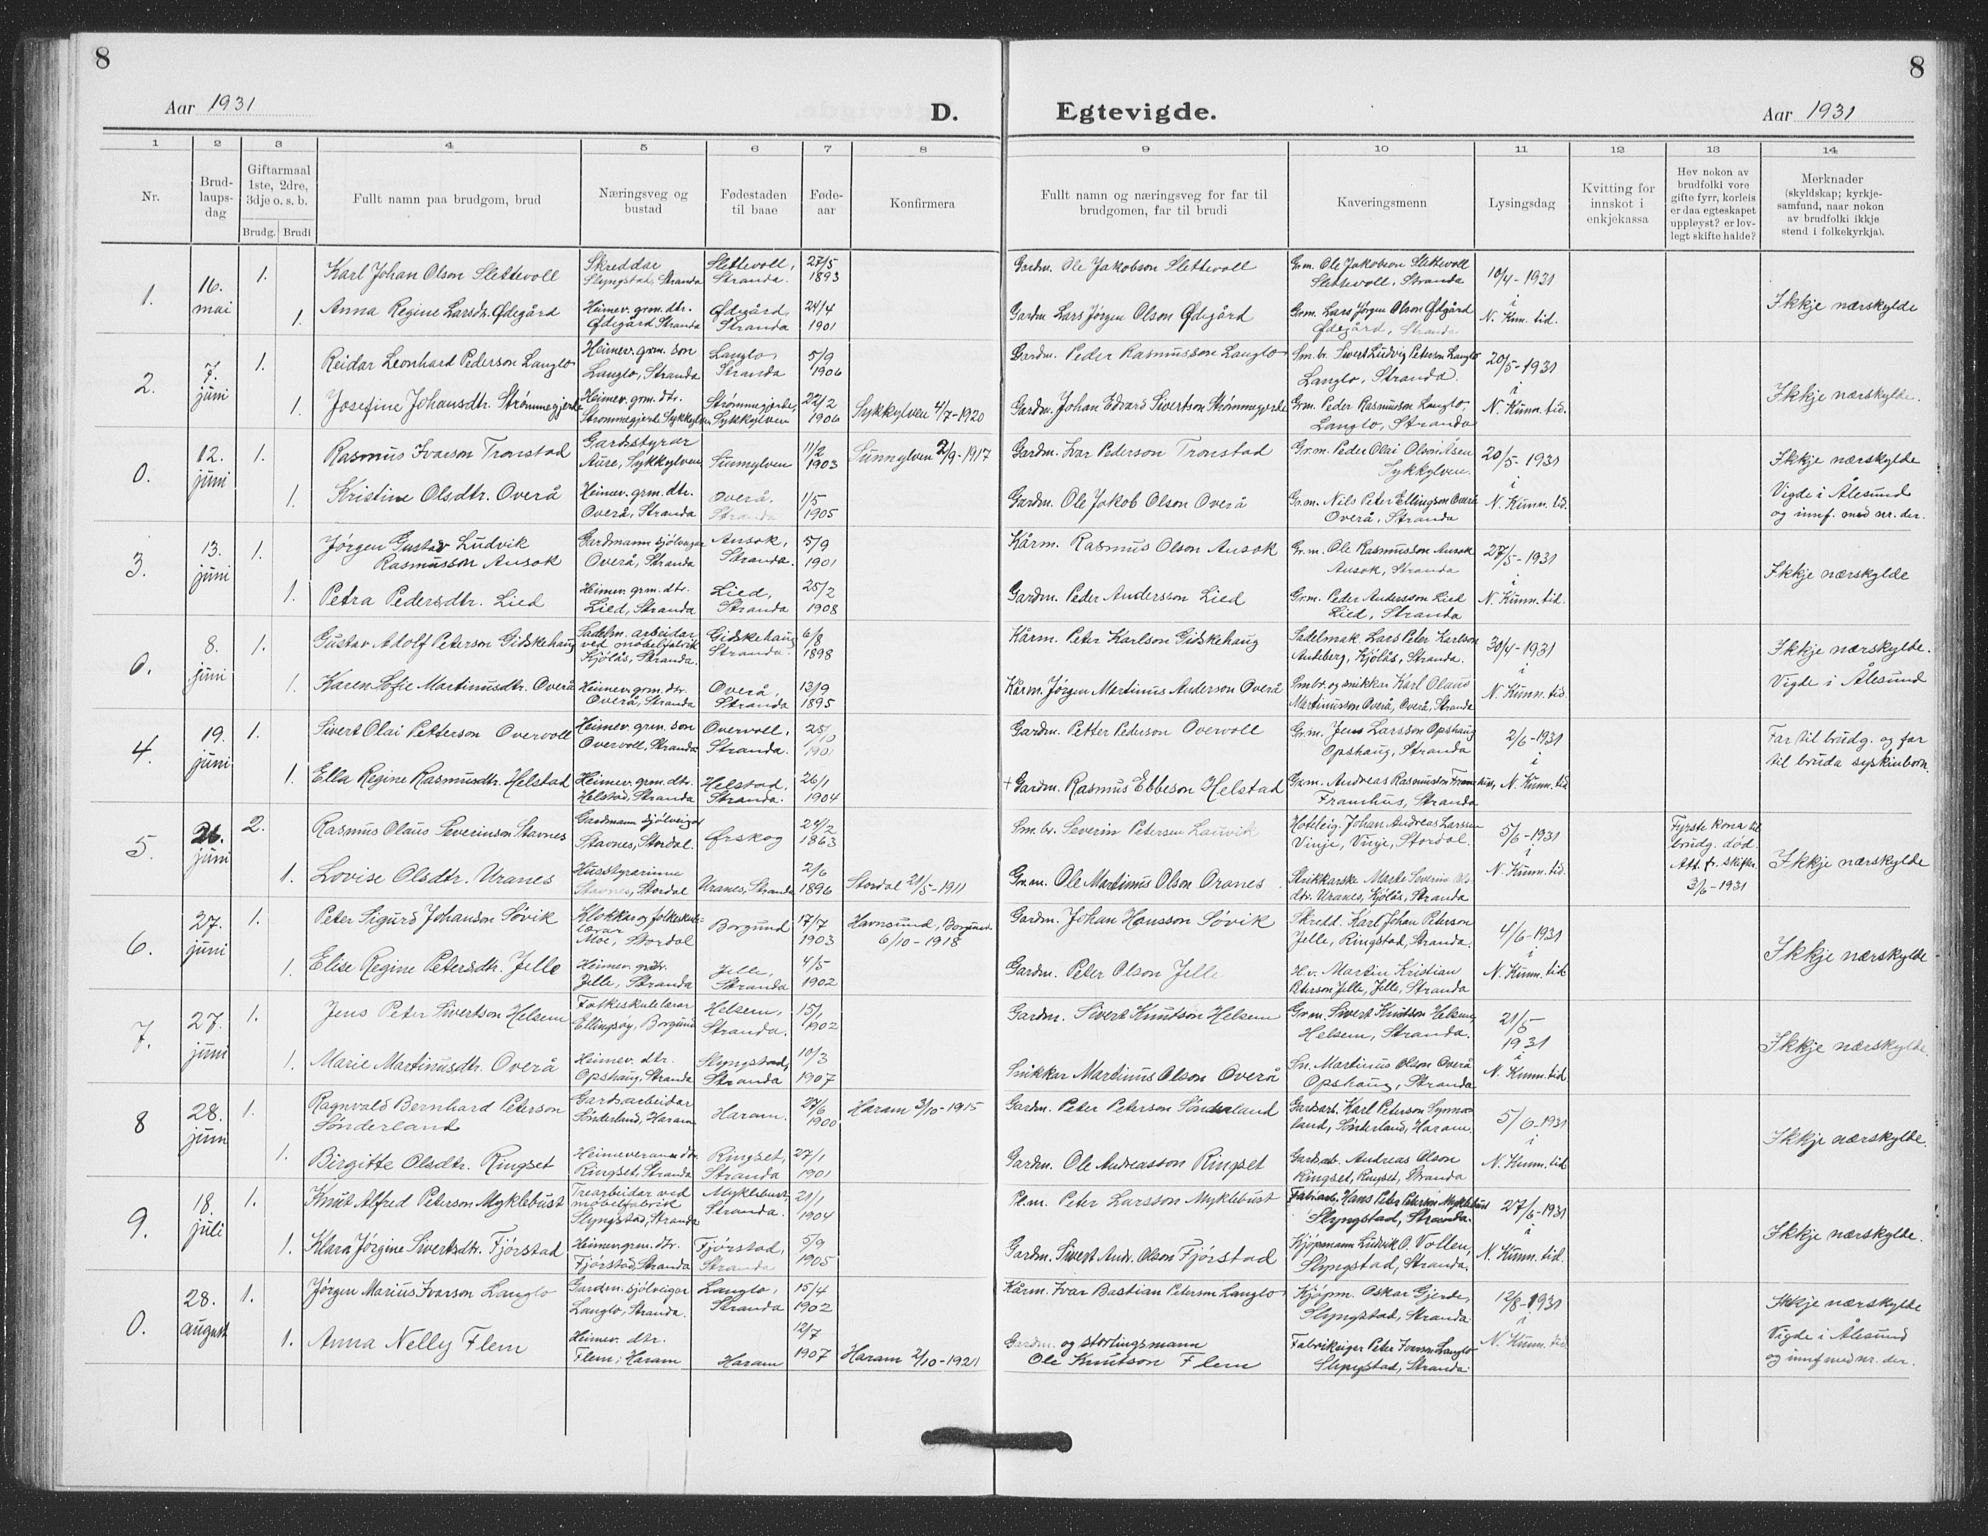 8
8
Aar 1931
D.
Egtevigde.
Aar 1931
1 2 3 4 5 6 7 8 9 10 11 12 13 14
Nr.
Brud-
laups-
dag
Giftarmaal
1ste, 2dre,
3dje o. s. b.
Brudg. Brudi
Fullt namn paa brudgom, brud
Næringsveg og
bustad
Fødestaden
til baae
Føde-
aar
Konfirmera
Fullt namn og næringsveg for far til
brudgomen, far til brudi
Kaveringsmenn
Lysingsdag
Kvitting for
innskot i
enkjekassa
Hev nokon av
brudfolki vore
gifte fyrr, korleis
er daa egteskapet
uppløyst? er lov-
legt skifte halde?
Merknader
(skyldskap; kyrkje-
samfund, naar nokon
av brudfolki ikkje
stend i folkekyrkja).
1. 16. mai
1. Karl Johan Olson Slettevoll
Skreddar
Slyngstad, Stranda
Slettevoll,
Stranda.
27/5
1893
Gardm. Ole Jakobson Slettevoll
Grm. Ole Jakobson Slettevoll
Slettevoll, Stranda
10/4-1931
i
N. Kun. tid.
Ikkje nærskylde
1. Anna Regine Larsdtr. Ødegård
Heimev. grm. dtr.
Ødegård, Stranda
Ødegård,
Stranda
24/4
1901
Gardm Lars Jörgen Olson Ødegård
Grm. Lars Jörgen Olson Ødgård
Ødegård, Stranda
2. 7. juni
1. Reidar Leonhard Pederson Langlo
Heimev. grm. son
Langlo, Stranda
Langlo,
Stranda
5/9
1906
Gardm. Peder Rasmusson Langlo
Sm.br. Sivert Ludvig Peterson Langlo
Langlo, Stranda.
20/5-1931
i
N. Kunn. tid.
Ikkje nærskylde.
1. Josefine Johansdtr. Strømmegjerde
Heimev. grm. dtr.
Strømmegjerde, Sykkylven
Strømmegjerde,
Sykkylven
22/2
1906
Sykkylven 4/7-1920
Gardm. Johan Edvard Sivertson Strømmegjerde
Grm. Peder Rasmusson Langlo,
Langlo, Stranda
0. 12. juni
1. Rasmus Ivarson Tronstad
Gardsstyrar
Aure, Sykkylven
Sunnylven
11/2
1903
Sunnylven 2/9-1917
Gardm. Ivar Pederson Tronstad
Gr.m. Peder Olai
Sykkylven.
20/5-1931
i
N. Kunn. tid.
Ikkje nærskylde
Vigde i Ålesund
og innf. med nr. der.
1. Kristine Olsdtr. Overå
Heimev. grm. dtr.
Overå, Stranda
Overå,
Stranda
1/5
1905
Gardm. Ole Jakob Olson Overå
Gr.m. Nils Peter Ellingson Overå
Overå, Stranda
3. 13. juni
1. Jørgen Gustav Ludvik
Rasmusson Ansok
Gardmann sjølveigar
Overå, Stranda
Ansok,
Stranda.
5/9
1901
Kårm. Rasmus Olson Ansok
Gr.m. Ole Rasmusson Ansok
Ansok, Stranda
27/5-1931
i
N. Kunn. tid.
Ikkje nærskylde
1. Petra Pedersdtr. Lied
Heimev. grm. dtr.
Lied, Stranda
Lied,
Stranda
25/2
1908
Gardm. Peder Andersson Lied
Gr.m. Peder Andersson Lied
Lied, Stranda
0. 8. juni
1. Gustav Adolf Peterson Gidskehaug
Sadelm. arbeidar
ved møbelfabrik
Kjølås, Stranda.
Gidskehaug
Stranda.
6/8
1898
Kårm. Peter Karlson Gidskehaug
Sadelmak. Lars Peter Karlson
Andsberg, Kjølås, Stranda.
30/4-1931
i
N. Kunn. tid.
Ikkje nærskylde.
Vigde i Ålesund
1. Karen Sofie Martinusdtr. Overå
Heimev. grm. dtr.
Overå, Stranda
Overå,
Stranda
13/9
1895
Kårm. Jørgen Martinus Anderson Overå
Smbr. og snikkar Karl Olaus
Martinusson Overå, Overå, Stranda
4. 19. juni
1. Sivert Olai Petterson Overvoll
Heimev. grm. son
Overvoll, Stranda
Overvoll,
Stranda.
25/10
1901
Gardm. Petter Pederson Overvoll
Gr.m. Jens Larsson Opshaug
Opshaug, Stranda
2/6-1931
i
N. Kunn. tid
Far til brudg. og far
til bruda syskinborn.
1. Ella Regine Rasmusdtr. Helstad
Heimev. grm. dtr.
Helstad, Stranda
Helstad,
Stranda.
26/1
1904
+ Gardm. Rasmus Ebbeson Helstad
Grm. Andreas Rasmusson Framhus,
Framhus, Stranda
5. 26. juni
2. Rasmus Olaus Severinson Stavnes
Gardmann sjølveigar
Stavnes, Stordal.
Ørskog
24/2
1863
Sm.br. Severin Petersen Lauvik
Hoteleig. Johan Andreas Larssen
Vinje, Vinje, Stordal.
5/6-1931
i
N. Kunn. tid.
Fyrste kona til
brudg. død.
Att. fr. skifter.
3/6-1931
Ikkje nærskylde
1. Lovise Olsdtr. Uranes
Husstyrarinne
Stavnes, Stordal
Uranes, Stranda
2/6
1896
Stordal 21/5-1911
Gr.m. Ole Martinus Olson Oranes
Strikkarske Marte Severine Ols-
dtr. Uranes, Kjølås, Stranda
6. 27. juni
1. Peter Sigurd Johanson Søvik
Klokkar og folkeskule-
lærar
Moe, Stordal
Borgund
17/7
1903
Hamsund, Borgund
6/10-1918
Gardm. Johan Hansson Søvik
Skredd. Karl Johan Peterson
Jelle, Ringstad, Stranda.
4/6-1931
i
N. Kunn. tid
Ikkje nærskylde
1. Elise Regine Petersdtr. Jelle
Jelle, Stranda
Jelle,
Stranda
4/5
1902
Gardm. Peter Olson Jelle
H.v. Martin Kristian
Peterson Jelle, Jelle, Stranda
7. 27. juni
1. Jens Peter Sivertson Helsem
Folkeskulelærar
Ellingsøy, Borgund
Helsem,
Stranda.
15/1
1902
Gardm. Sivert Knutson Helsem
Gr.m. Sivert Knutson Helsem,
Helsem, Stranda.
21/5
1931
i
N. Kunn. tid
Ikkje nærskylde.
1. Marie Martinusdtr. Overå
Heimev. dtr.
Opshaug, Stranda
Slyngstad,
Stranda
10/3
1907
Snikkar Martinus Olson Overå
Sn. Martinus Olson Overå
Opshaug, Stranda
8 28. juni
1. Ragnvald Bernhard Peterson
Sønderland
Gardsarbeidar
Sønderland, Haram
Haram.
27/6
1900
Haram 3/10-1915
Gardm. Peter Peterson Sønderland
Gardsarb. Karl Peterson Synna-
land, Sønderland, Haram.
5/6-1931
i
N. Kunn. tid.
Ikkje nærskylde.
1. Birgitte Olsdtr. Ringset
Heimeverande dtr.
Ringset, Stranda
Ringset,
Stranda
27/1
1901
Gardm. Ole Andreasson Ringset
Gardsarb. Andreas Olson
Ringset, Ringset, Stranda
9. 18. juli
1. Knut Alfred Peterson Myklebust
Trearbeidar ved
møbelfabrik
Slyngstad, Stranda
Myklebust,
Stranda.
21/1
1904
Pl.m. Peter Larsson Myklebust
Fabrikarb. Hans Peter Peterson Myklebust
Slyngstad, Stranda.
27/6-1931
i
N. Kunn. tid.
Ikkje nærskylde.
1. Klara Jørgine Sivertsdtr. Fjørstad
Heimev. grm. dtr.
Fjørstad, Stranda
Fjørstad,
Stranda
5/9
1905
Gardm. Sivert And. Olson Fjørstad
Kjøpmann Ludvik O. Vollen,
Slyngstad, Stranda.
0. 28. august
1. Jørgen Marius Ivarson Langlo
Gardm. sjølveigar
Langlo, Stranda.
Langlo,
Stranda
15/4
1902
Kårm. Ivar Bastian Peterson Langlo
Kjøpm. Oskar Gjerde,
Slyngstad, Stranda.
12/8-1931
i
N. Kunn. tid
Ikkje nærskylde
Vigde i Ålesund
og innf med nr. der.
1. Anna Nelly Flem
Heimev. dtr.
Flem, Haram
Haram
12/7
1907
Haram 2/10-1921
Gardm. og stortingsmann
Ole Knutson Flem
Fabrikeigar Peter Ivarson Langlo
Slyngstad, Stranda.